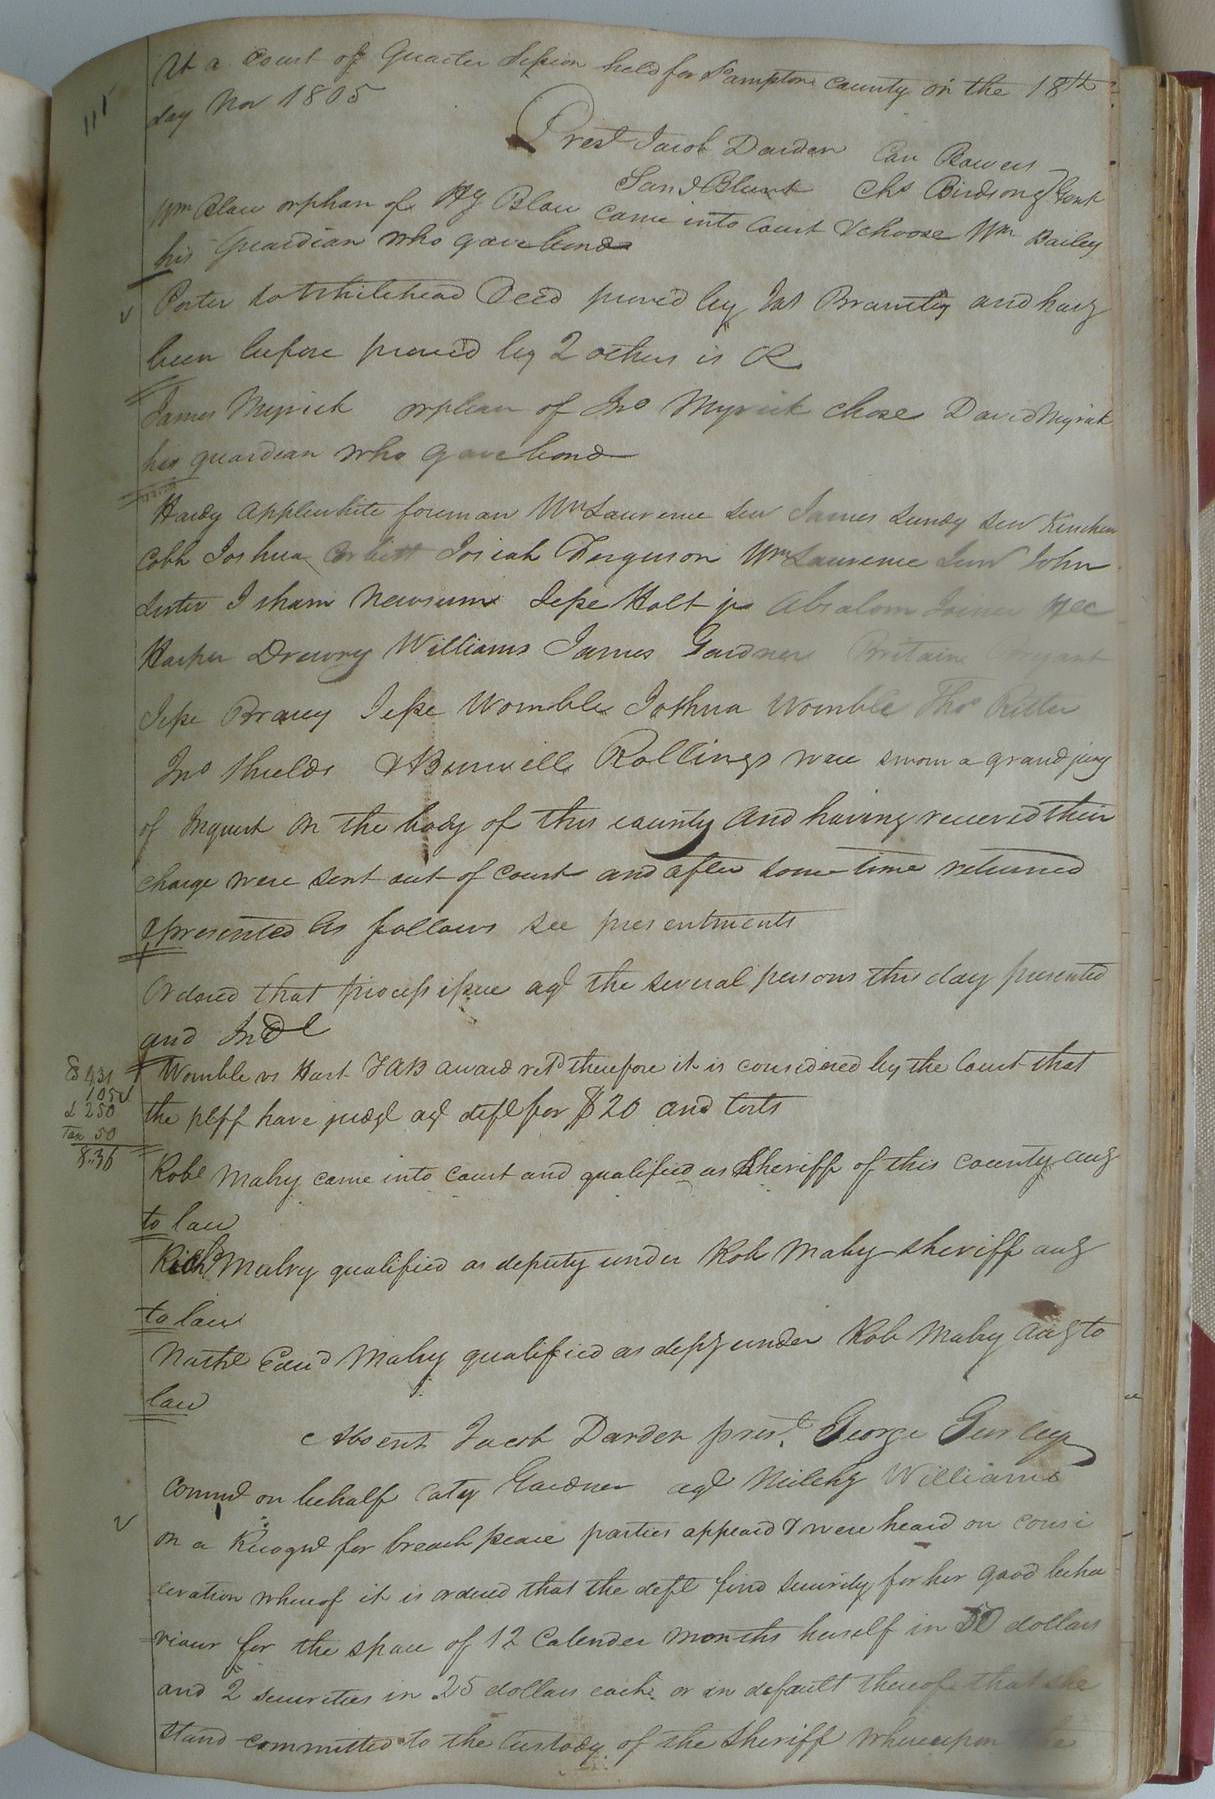 111
At a Court of Quarter Session held for S'ampton County on the 18th
day Nov 1805
Prest Jacob Darden Can Bowers
Sam l Blunt Chs Birdsong Gent
Wm Blow orphan of Hy Blow came into Court & choose Wm Bailey
his Guardian who gave bond
Porter to Whitehead Deed proved by Jas Brantly and havg
been before proved by 2 others is OR
James Myrick orphan of Jno Myrick chose David Myrick
his guardian who gave bond
Hardy Applewhite foreman Wm Laurence Sen James Lundy Sen Kinchen
Cobb Joshua Corbett Josiah Ferguson Wm Laurence Jun John
Luter Isham Newsum Jesse Holt jr Absalom Joiner
Harper Drewry Williams James Gardner Britain Bryant
Jesse Bracy Jesse Womble Joshua Womble Thos Ritter
Jno Shields & Burwell Rollings were sworn a grand jury
of Inquest on the body of this county and having received their
charge were sent out of court and after some time returned
& presented as follows see presentments
Ordered that process issue agt the several persons this day presented
and Indt
Womble vs Hart TAB award retd therefore it is considered by the Court that
the pltff have judgt agt deft for $20 and Costs
$ 4.31
105
250
Tax 50
8.36
Robt Mabry came into Court and qualified as Sheriff of this county accg
to law
Richd Mabry qualified as deputy under Rob Mabry Sheriff accg
to law
Nathl Edwd Mabry qualified as depy under Rob Mabry accg to
law
Absent Jacob Darden prest. George Gurley
Commt on behalf Caty Gardner agt Milchy Williams
on a Recogne for breach peace parties appeard & were heard on consi
deration whereof it is ordered that the deft find security for her good beha
viour for the space of 12 Calender months herself in 50 dollars
and 2 securities in 25 dollars each or in default thereof that she
stand committed to the Custody of the Sheriff whereupon the